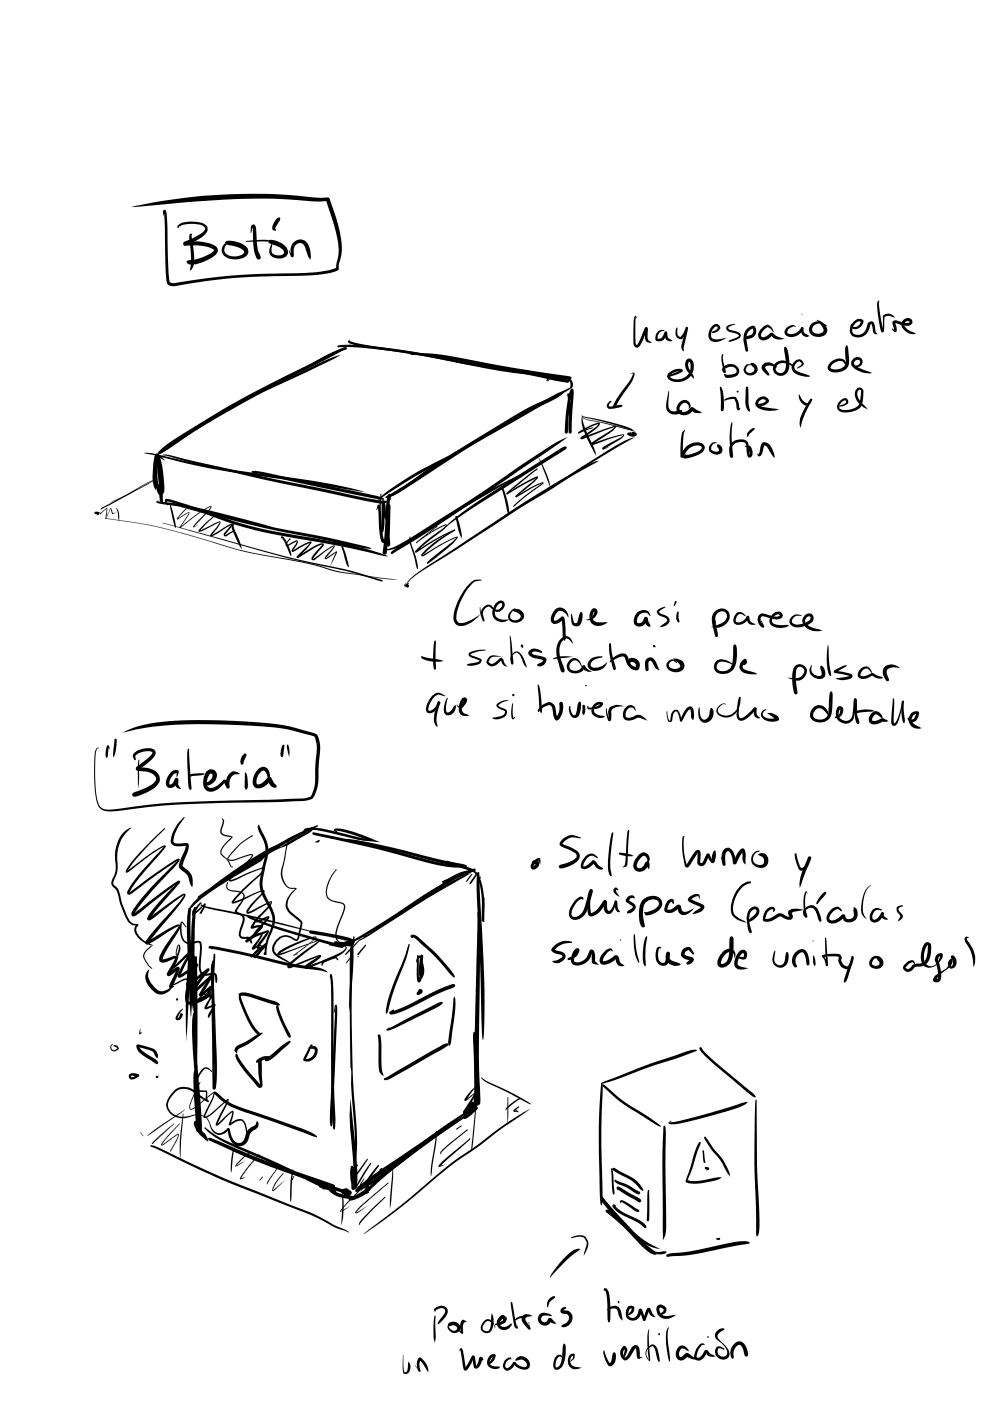 Botón
hay espacio entre
el borde de
la tile y el
botón
Creo que así parece
+ satisfactorio de pulsar
que si huviera mucho detalle
"Batería"
• Salta humo y
chispas (partículas
sencillas de unity o algo)
!
!
Por detrás tiene
un hueco de ventilación